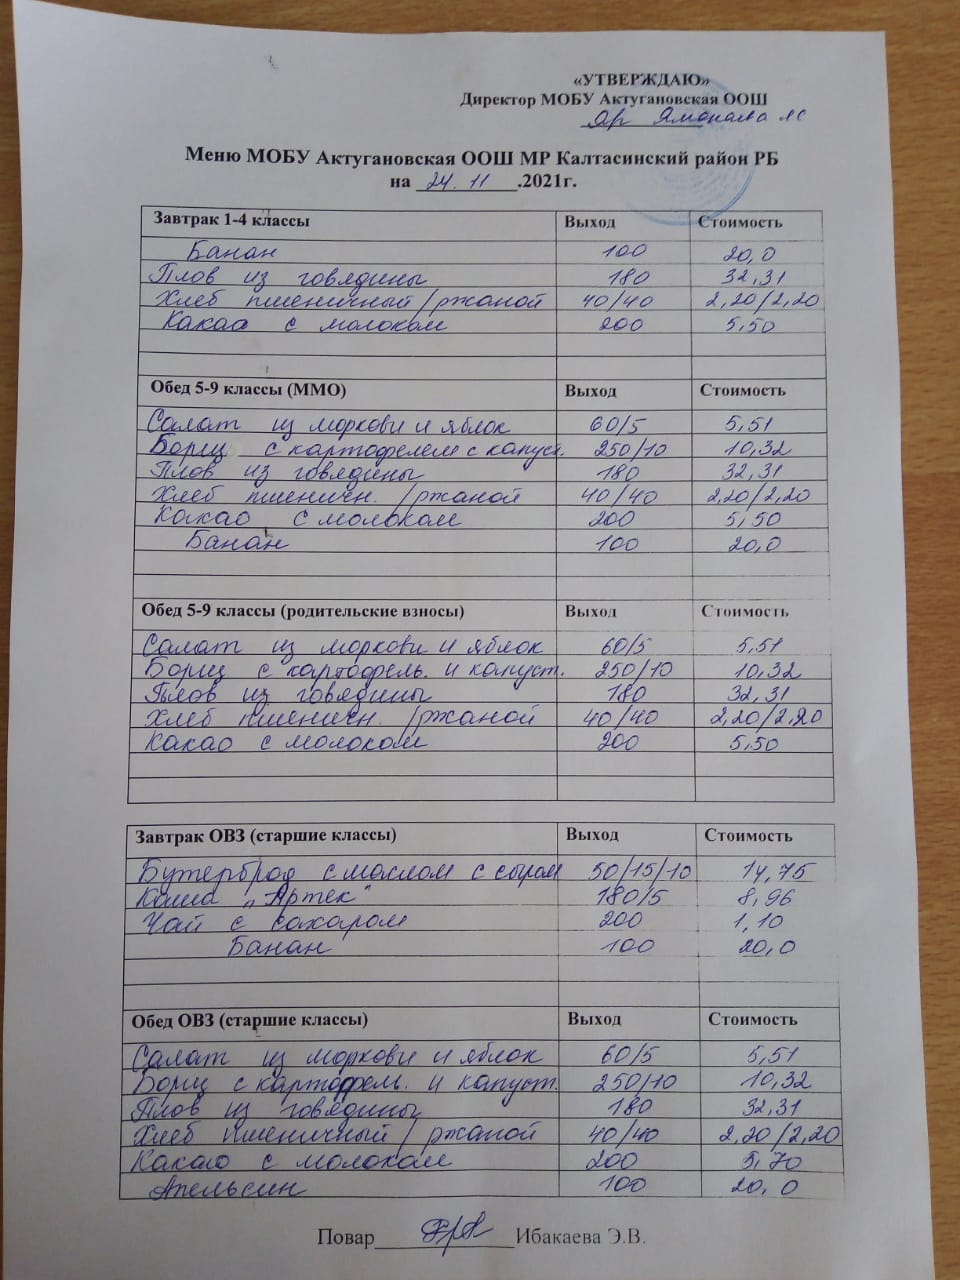 «УТВЕРЖДАЮ»
Директор МОБУ Актугановская ООШ
Меню МОБУ Актугановская ООШ МР Калтасинский район РБ
на 24.11.2021г.
Завтрак 1-4 классы Выход Стоимость
Банан 100 20,0
Плов из говядины 180 32,31
Хлеб пшеничный/ржаной 40/40 2,20/2,20
Какао с молоком 200 5,50
Обед 5-9 классы (ММО) Выход Стоимость
Салат из моркови и яблок 60/5 5,51
Борщ с картофелем с капуст. 250/10 10,32
Плов из говядины 180 32,31
Хлеб пшеничн. /ржаной 40/40 2,20/2,20
Какао с молоком 200 5,50
Банан 100 20,0
Обед 5-9 классы (родительские взносы) Выход Стоимость
Салат из моркови и яблок 60/5 5,51
Борщ с картофель. и капуст. 250/10 10,32
Плов из говядины 180 32,31
Хлеб пшеничн. /ржаной 40/40 2,20/2,20
Какао с молоком 200 5,50
Завтрак ОВЗ (старшие классы) Выход Стоимость
Бутерброд с маслом с сыром 50/15/10 14,75
Каша „Артек" 180/5 8,96
Чай с сахаром 200 1,10
Банан 100 20,0
Обед ОВЗ (старшие классы) Выход Стоимость
Салат из моркови и яблок 60/5 5,51
Борщ с картофель. и капуст. 250/10 10,32
Плов из говядины 180 32,31
Хлеб пшеничный / ржаной 40/40 2,20/2,20
Какао с молоком 200 5,70
Апельсин 100 20,0
Повар Ибакаева Э.В.